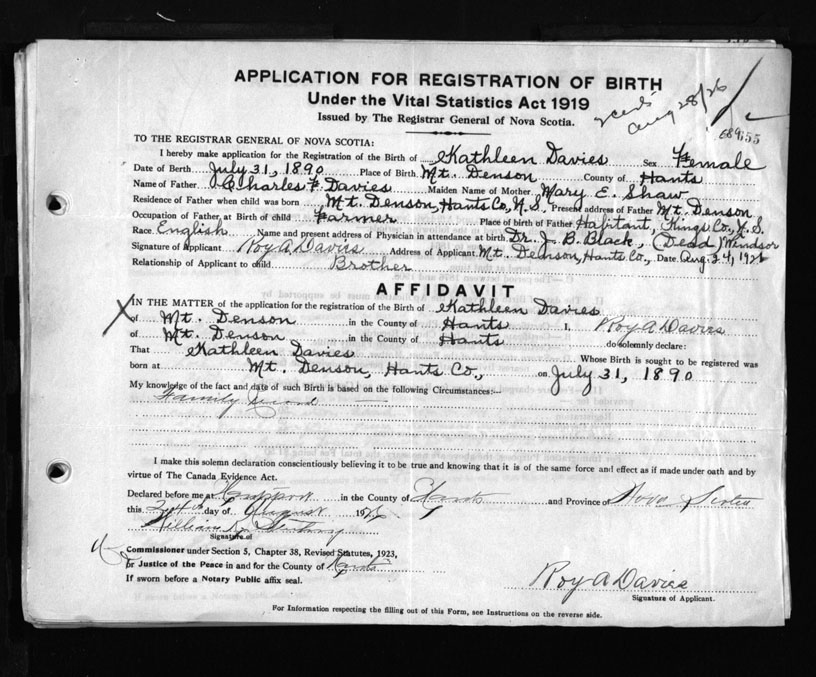 APPLICATION FOR REGISTRATION OF BIRTH
Under the Vital Statistics Act 1919
Issued by The Registrar General of Nova Scotia.
Aug 28/26
689155
TO THE REGISTRAR GENERAL OF NOVA SCOTIA:
I hereby make application for the Registration of the Birth of Kathleen Davies Sex Female
Date of Birth July 31, 1890 Place of Birth Mt. Denson County of Hants
Name of Father Charles F. Davies Maiden Name of Mother Mary E. Shaw
Residence of Father when child was born Mt. Denson, Hants Co, N.S. Present address of Father Mt. Denson
Occupation of Father at Birth of child Farmer Place of birth of Father Habitant, Kings Co., N.S.
Race English Name and present address of Physician in attendance at birth Dr. J. B. Black, (Dead) Windsor
Signature of Applicant Roy A Davies Address of Applicant Mt. Denson, Hants Co., Date Aug. 24, 1926
Relationship of Applicant to child Brother
AFFIDAVIT
X
IN THE MATTER of the application for the registration of the Birth of Kathleen Davies
of Mt. Denson in the County of Hants I, Roy A Davies
of Mt. Denson in the County of Hants do solemnly declare:
That Kathleen Davies Whose Birth is sought to be registered was
born at Mt. Denson, Hants Co., on July 31, 1890
My knowledge of the fact and date of such Birth is based on the following Circumstances:—
Family record
I make this solemn declaration conscientiously believing it to be true and knowing that it is of the same force and effect as if made under oath and by
virtue of The Canada Evidence Act.
Declared before me at Hantsport in the County of Hants and Province of Nova Scotia
this 24th day of August 1926
William
Signature of
Commissioner under Section 5, Chapter 38, Revised Statutes, 1923,
or Justice of the Peace in and for the County of Hants
If sworn before a Notary Public affix seal.
Roy A Davies
Signature of Applicant.
For Information respecting the filling out of this Form, see Instructions on the reverse side.